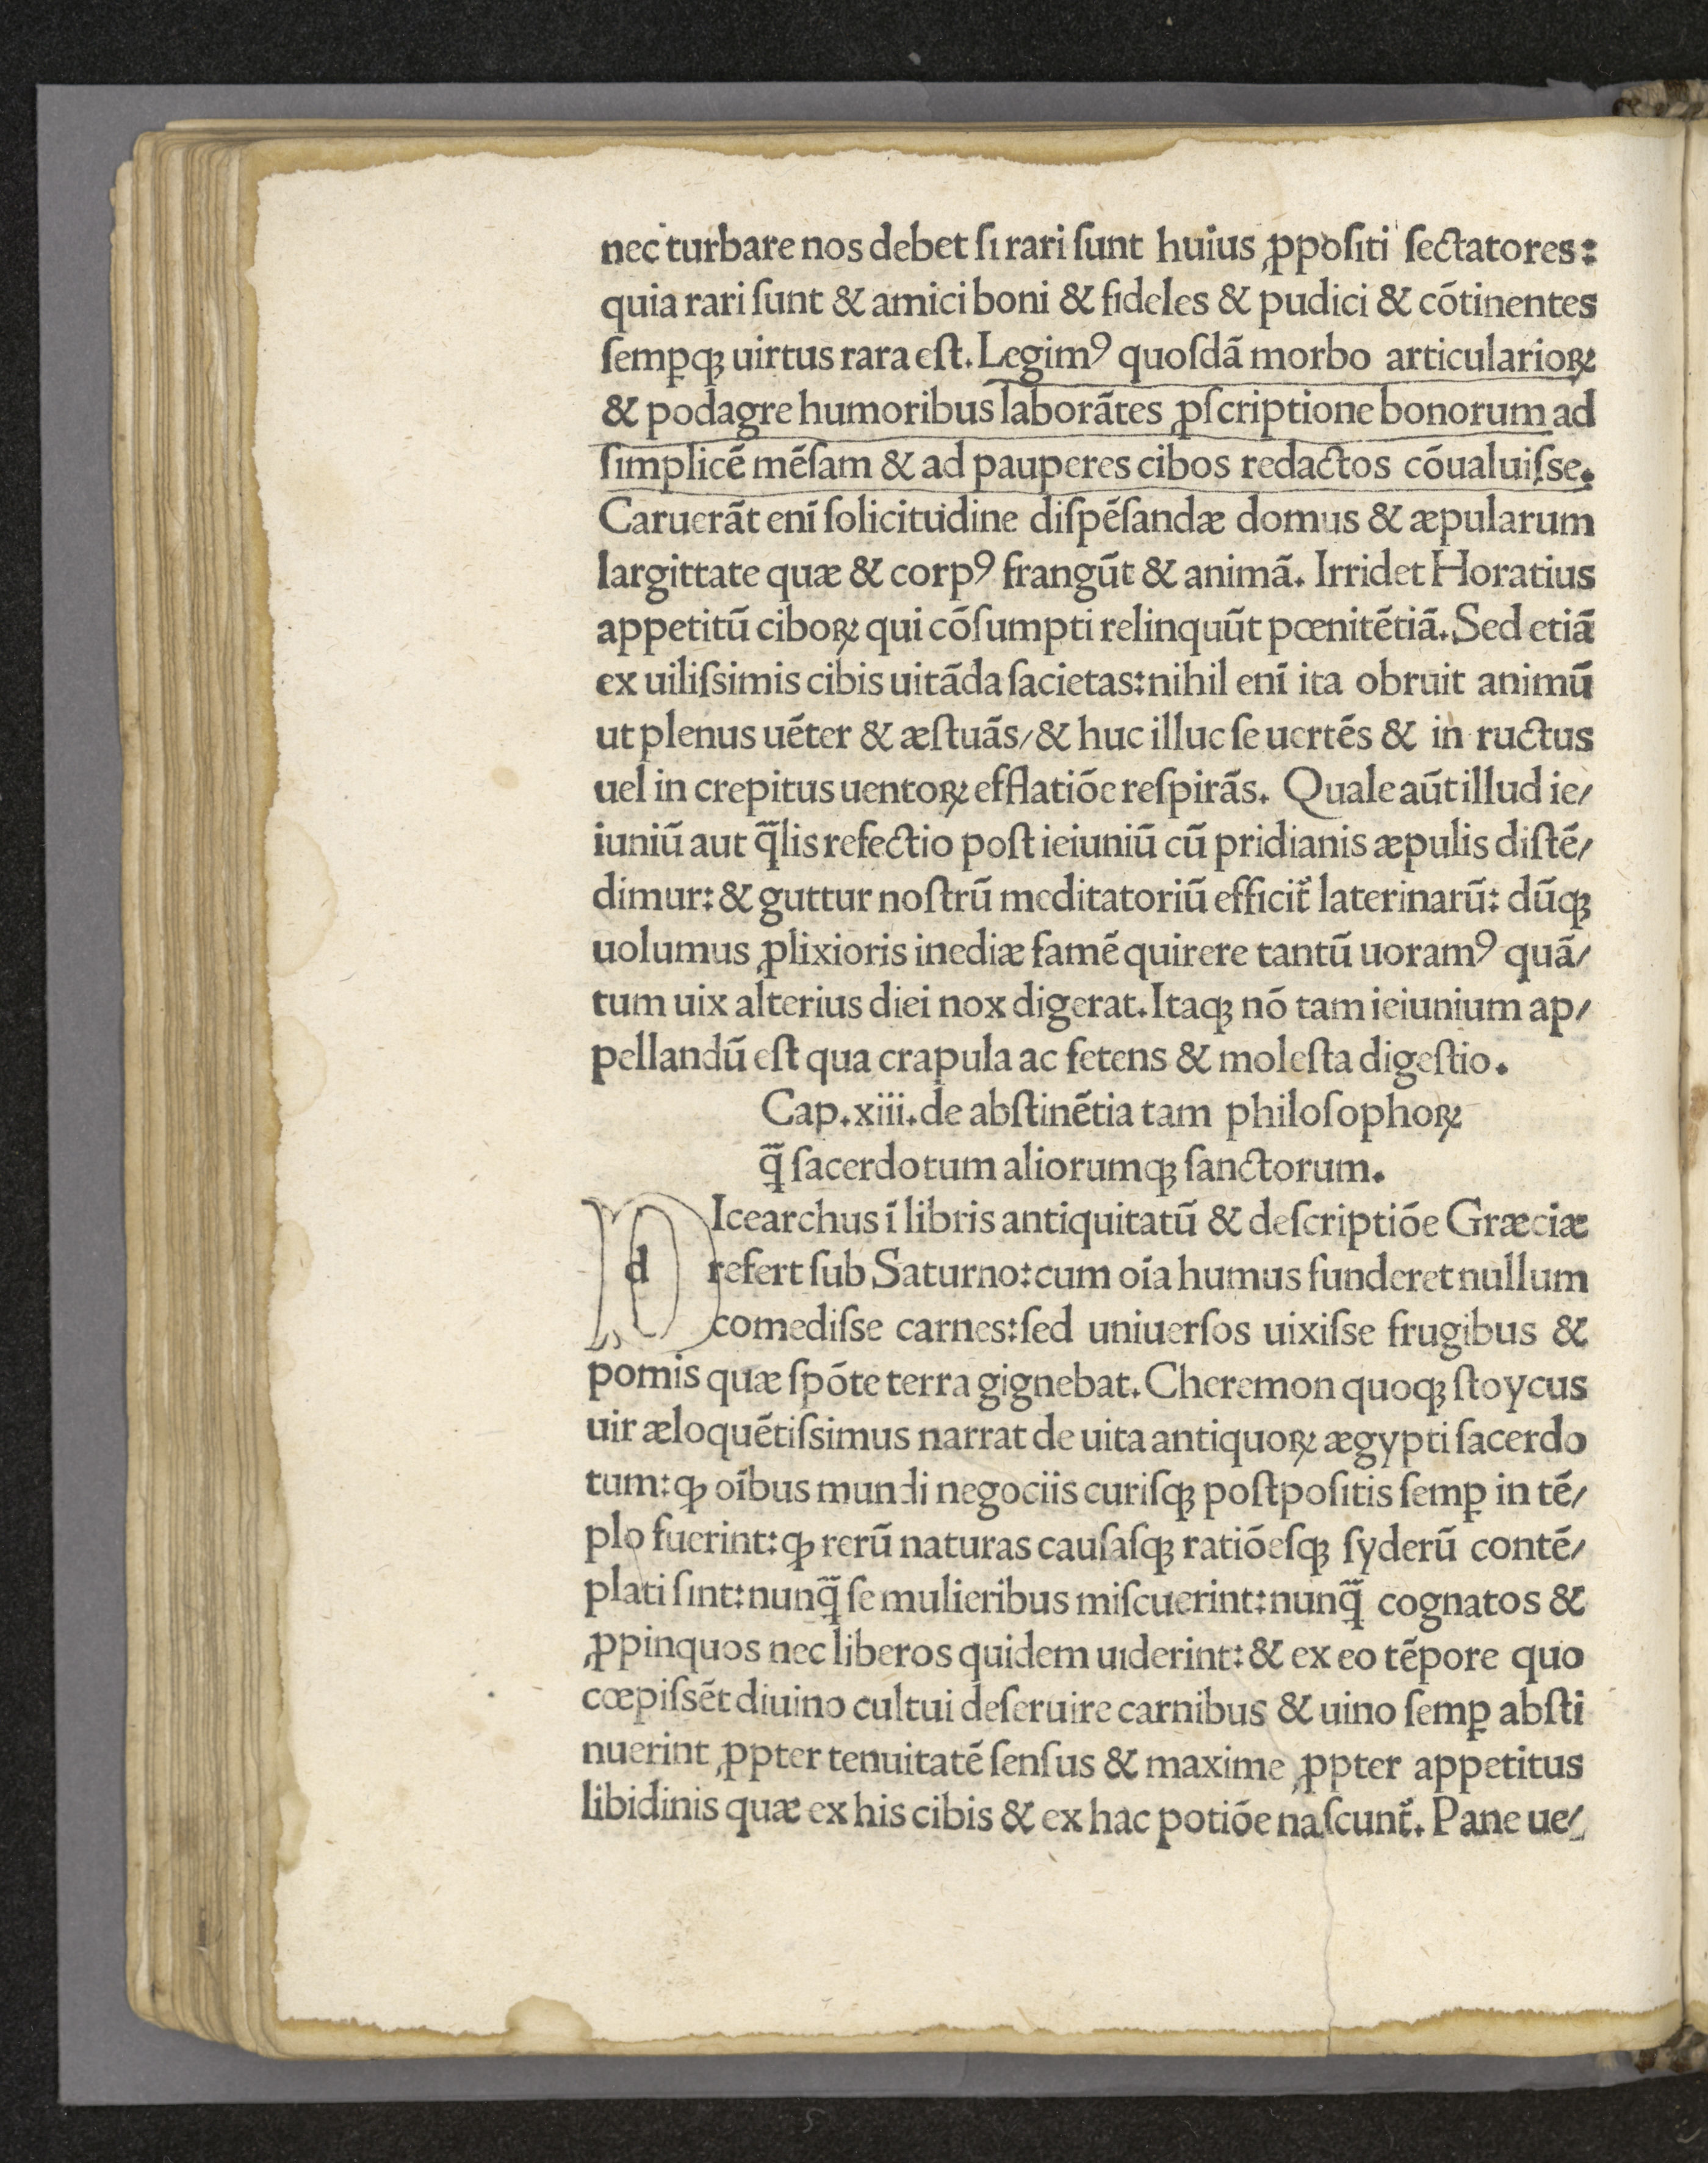 nec turbare nos debet ſi rari ſunt huius ꝓpoſiti ſectatores:
quia rari ſunt & amici boni & fideles & pudici & cõtinentes
ſemꝑqꝫ uirtus rara eſt. Legimꝰ quoſdã morbo articularioꝝ
& podagre humoribus laborãtes ꝓſcriptione bonorum ad
ſimplicẽ mẽſam & ad pauperes cibos redactos cõualuiſse.
Caruerãt enĩ ſolicitudine diſpẽſandæ domus & æpularum
largittate quæ & corpꝰ frangũt & animã. Irridet Horatius
appetitũ ciboꝝ qui cõſumpti relinquũt pœnitẽtiã. Sed etiã
ex uiliſsimis cibis uitãda ſacietas: nihil enĩ ita obruit animũ
ut plenus uẽter & æſtuãs/ & huc illuc ſe uertẽs & in ructus
uel in crepitus uentoꝝ efflatiõe reſpirãs. Quale aũt illud ie/
iuniũ aut q̃lis refectio poſt ieiuniũ cũ pridianis æpulis diſtẽ/
dimur: & guttur noſtrũ meditatoriũ efficit̃ laterinarũ: dũqꝫ
uolumus ꝓlixioris inediæ famẽ quirere tantũ uoramꝰ quã/
tum uix alterius diei nox digerat. Itaqꝫ nõ tam ieiunium ap/
pellandũ eſt qua crapula ac fetens & moleſta digeſtio.
Cap. xiii. de abſtinẽtia tam philoſophoꝝ
q̃ ſacerdotum aliorumqꝫ ſanctorum.
dIcearchus ĩ libris antiquitatũ & deſcriptiõe Græciæ
refert ſub Saturno: cum oĩa humus funderet nullum
comediſse carnes: ſed uniuerſos uixiſse frugibus &
pomis quæ ſpõte terra gignebat. Cheremon quoqꝫ ſtoycus
uir æloquẽtiſsimus narrat de uita antiquoꝝ ægypti ſacerdo
tum: ꝙ oĩbus mundi negociis curiſqꝫ poſtpoſitis ſemꝑ in tẽ/
plo fuerint: ꝙ rerũ naturas cauſaſqꝫ ratiõeſqꝫ ſyderũ contẽ/
plati ſint: nunq̃ ſe mulieribus miſcuerint: nunq̃ cognatos &
ꝓpinquos nec liberos quidem uiderint: & ex eo tẽpore quo
cœpiſsẽt diuino cultui deſeruire carnibus & uino ſemꝑ abſti
nuerint ꝓpter tenuitatẽ ſenſus & maxime ꝓpter appetitus
libidinis quæ ex his cibis & ex hac potiõe naſcunt̃. Pane ue/